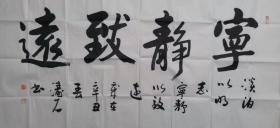 寧靜致遠
淡泊
以明
志
寧靜
以致
遠
歲在
辛丑
春
書